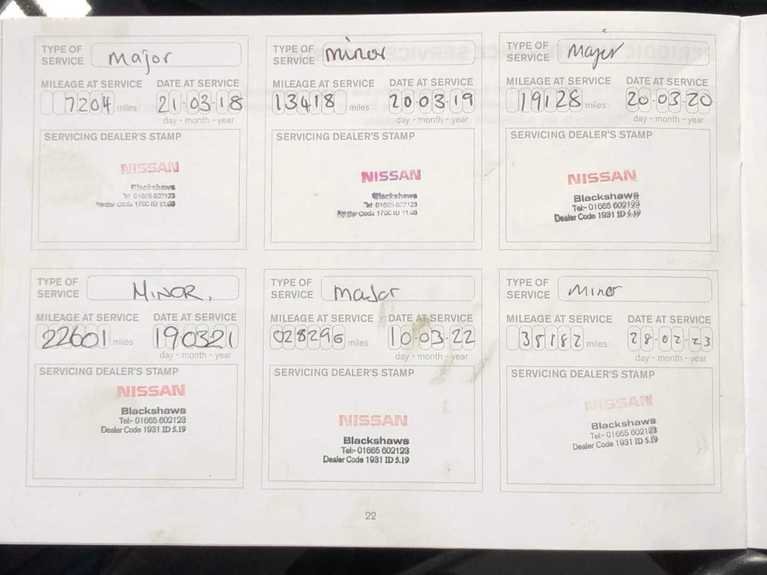 TYPE OF SERVICE major
MILEAGE AT SERVICE DATE AT SERVICE
7204 miles 21-03-18
day - month - year
SERVICING DEALER'S STAMP
NISSAN
Blackshaws
TYPE OF SERVICE minor
MILEAGE AT SERVICE DATE AT SERVICE
13418 miles 20 03 19
day - month - year
SERVICING DEALER'S STAMP
NISSAN
Blackshaws
TYPE OF SERVICE Major
MILEAGE AT SERVICE DATE AT SERVICE
19128 miles 20-03-20
day - month - year
SERVICING DEALER'S STAMP
NISSAN
Blackshaws
Tel:- 01665 602123
Dealer Code 1931 ID 5.19
TYPE OF SERVICE MINOR.
MILEAGE AT SERVICE DATE AT SERVICE
22601 miles 190321
day - month - year
SERVICING DEALER'S STAMP
NISSAN
Blackshaws
Tel:- 01665 602123
Dealer Code 1931 ID 5.19
TYPE OF SERVICE major
MILEAGE AT SERVICE DATE AT SERVICE
028296 miles 10-03-22
day - month - year
SERVICING DEALER'S STAMP
NISSAN
Blackshaws
Tel:- 01665 602123
Dealer Code 1931 ID 5.19
TYPE OF SERVICE minor
MILEAGE AT SERVICE DATE AT SERVICE
35182 miles 28-02-23
day - month - year
SERVICING DEALER'S STAMP
NISSAN
Blackshaws
Tel:- 01665 602123
Dealer Code 1931 ID 5.19
22